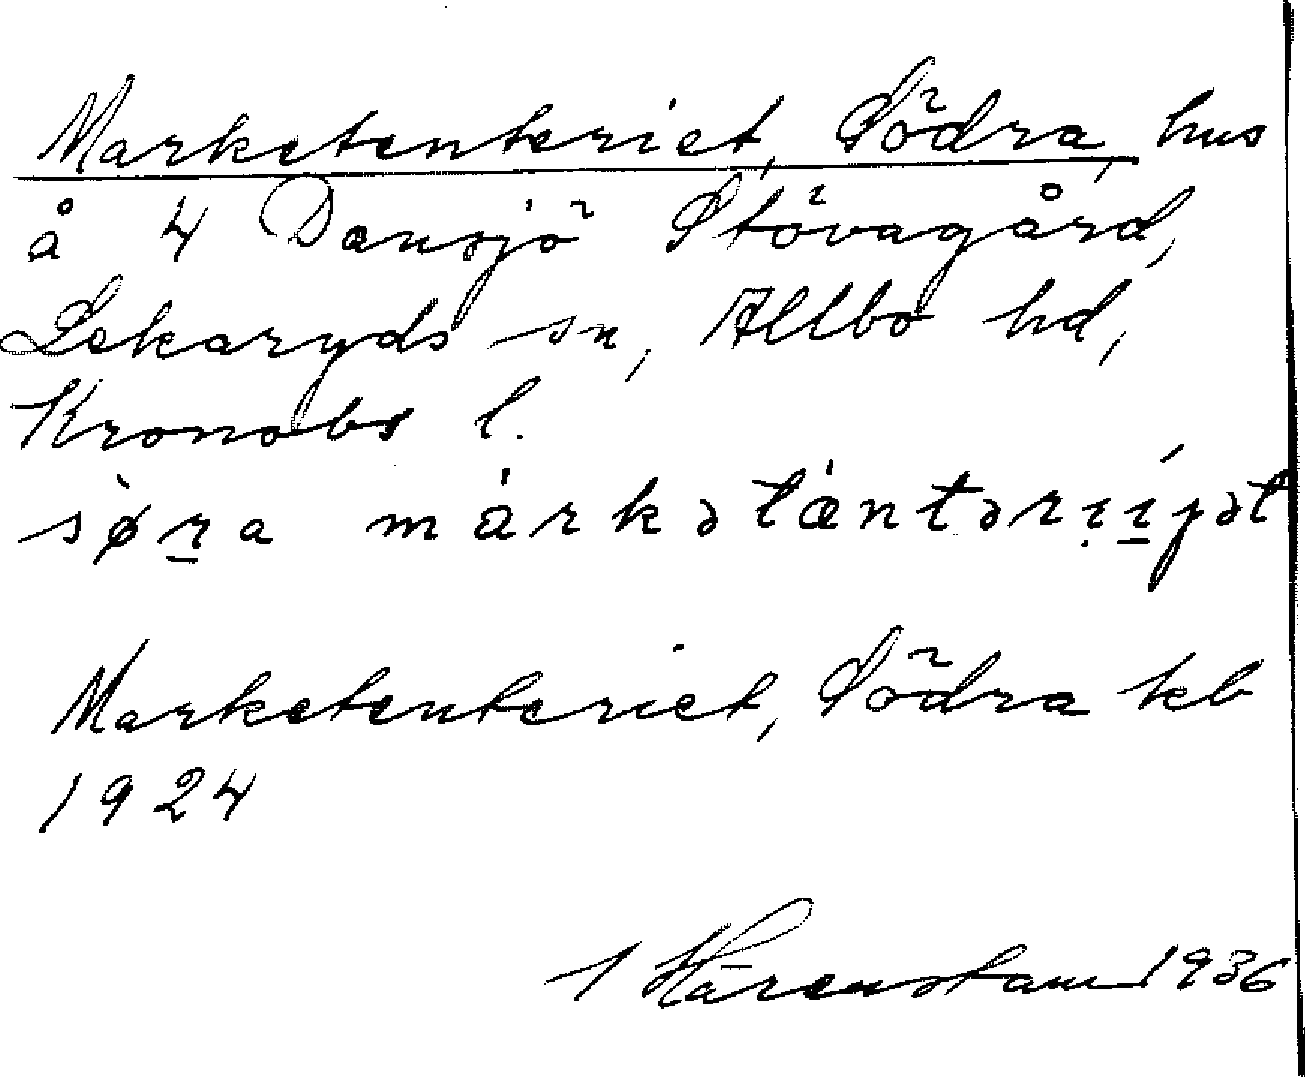 Marketenteriet, Södra, hus
å 4 Dansjö Stövagård,
Lekaryds sn, Allbo hd,
Kronobs l.
sø̀ṟa márkətæntəri̱i̱ɟət
Marketenteriet, Södra kb
1924
Härenstam 1936